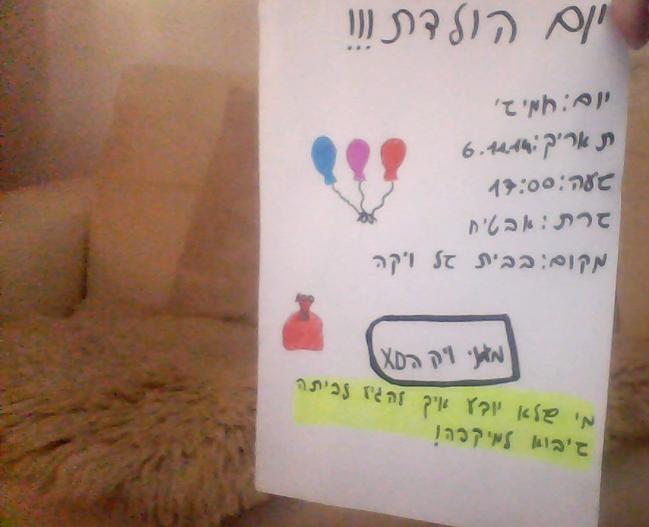 יום הולדת!!!
יום: חמישי
תאריך: 6.11.14
שעה: 17:00
שרת: אבטיח
מקום: בבית של ויקה
ויקה
מי שלא יודע איך להגיע לביתה
שיבוא למיקבה!